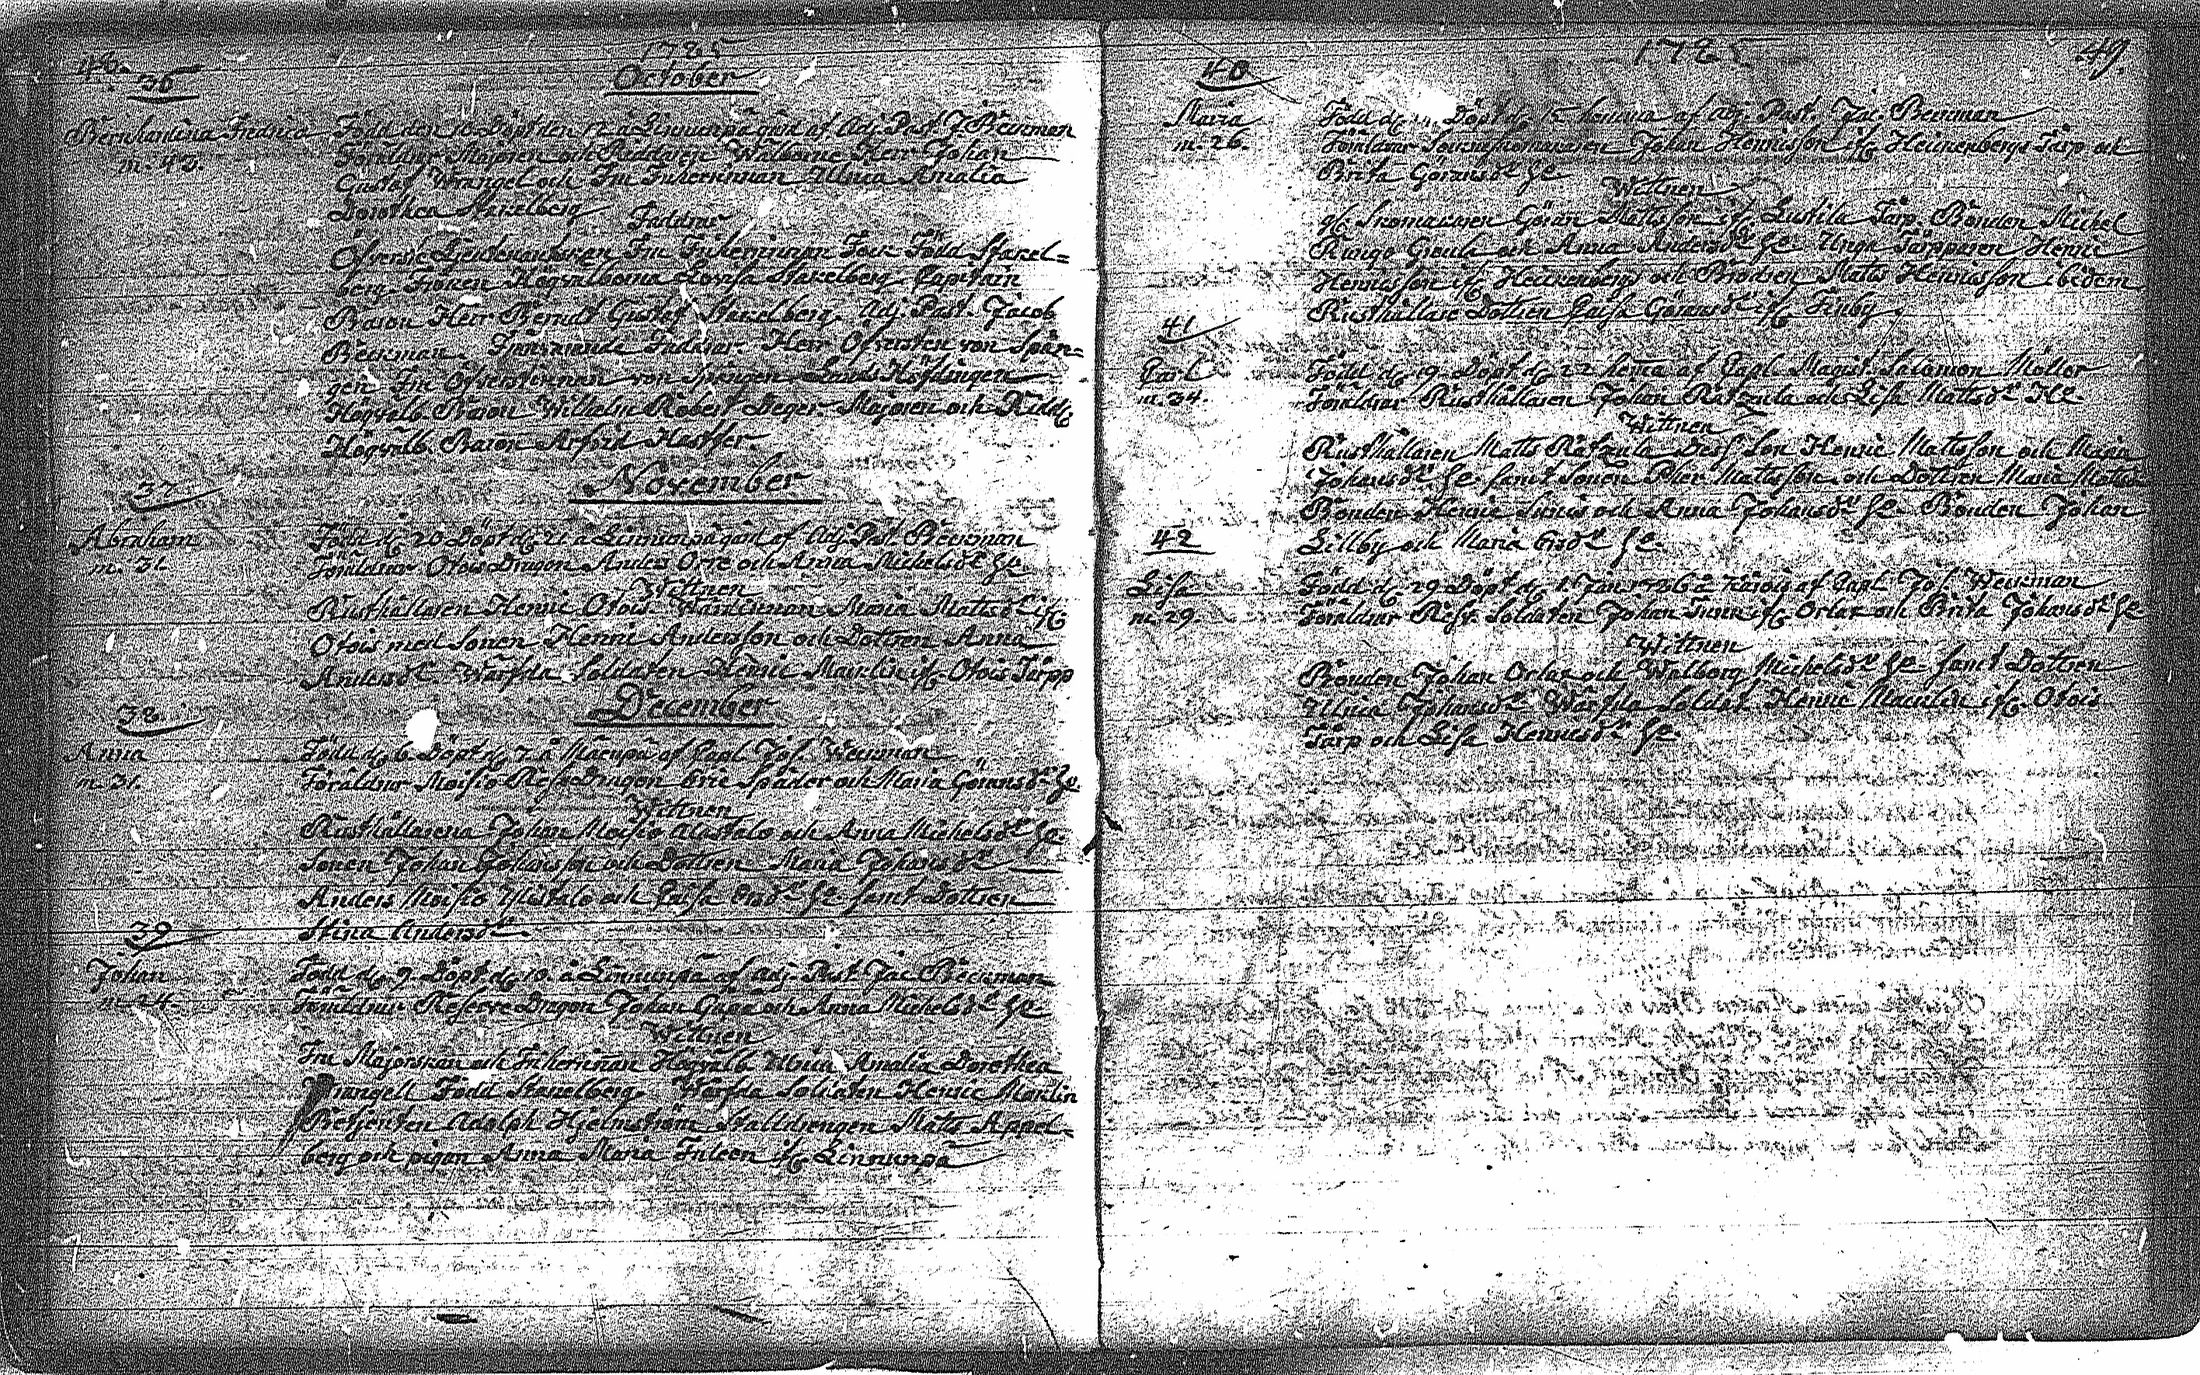 48.
1785
36
October
Bernhardina Fredrica Född den 10 Döpt den 12 å Linnunpä gård af Adj. Past. J. Beckman
m. 43. Föräldrar Majoren och Riddaren Wälborne Herr Johan
Gustaf Wrangel och Fru Friherrinnan Ulrica Amalia
Dorothea Stakelberg
Faddrar
Öfverste Lieutenantskan Fru Friherrinnan Fock Född Stakel=
berg. Fröken Högvälborna Lovisa Stakelberg. Capitain
Baron Herr Berndt Gustaf Stakelberg. Adj. Past. Jacob
Beckman. Frånvarande Faddrar. Herr Öfversten von Spån=
gen Fru Öfverstinnan von Spången Lands Höfdingen
Högvälb. Baron Wilhelm Robert Deger Majoren och Ridd.
Högvälb. Baron Arfvid Hastfer.
November
37
Abraham Född d. 20 Döpt d. 21 å Linnunpä gård af Adj. Past. Beckman
m. 31. Föräldrar Otois Dragon Anders Orre och Anna Michelsdr
Wittnen
Rusthållaren Henric Otois Wärdinnan Maria Mattsdr
Otois med Sonen Henric Andersson och Dottren Anna
Andersdr Värfda Soldaten Henric Maculin ifr. Otois Tårpp
December
38
Anna Född d. 6 Döpt d. 7 å Macnpä af Capl. Jos. Weckman
m. 31. Föräldrar Moisio Res. Dragon Eric Spader och Maria Göransdr
Wittnen
Rusthållarena Johan Moisio Alistalo och Anna Michelsdr
Sonen Johan Johansson och Dottren Maria Johansdr
Anders Moisio Ylistalo och Caisa Ersdr samt Dottren
Stina Andersdr.
39
Johan Född d. 9. Döpt d. 10. å Linnunpä af Adj. Past. Jac. Beckman
m. 24. Föräldrar Reserve Dragon Johan och Anna Michelsdr
Wittnen
Fru Majorskan och Friherrinnan Högvälb. Ulrica Amalia Dorothea
Wrangell Född Stakelberg. Värfda Soldaten Henric Maculin
Betjenten Adolph Hjelmström Stalldrengen Matts Appel=
berg och pigan Anna Maria ifr. Linnunpä
1785
49.
40
Maria Född d. Döpt d. 15 hemma af Adj. Past. Jac. Beckman
m. 26. Föräldrar Johan Henricsson ifr. Heickenbergs Tårp och
Brita Göransdr
Wittnen
Skomacaren Göran Mattsson ifr. Lustila Tårp. Bonden Michel
Rungo Greula och Anna Andersdr Unga Tårpparen Henric
Henricsson ifr. Heickenbergs och Brodren Matts Henricsson ibidem
Rusthållare Dottren Caisa Göransdr ifr. Finby.
41
Carl Född d. 19. Döpt d. 22 hema af Capl. Magist. Salomon Möller
m. 34. Föräldrar Rusthållaren Johan Rätzula och Lisa Mattsdr
Wittnen
Rusthållaren Matts Rätzula Dess Son Henric Matsson och Maria
Johansdr samt Sonen Matsson och Dottren Maria Matsdr
Bonden Henric Sunis och Anna Johansdr Bonden Johan
Lillby och Maria Ersdr
42
Lisa Född d. 29 Döpt d. 1 Jan. 1786 å Karois af Capl. Jos. Weckman
m. 29. Föräldrar Res. Soldaten Johan Sunn ifr. Orlax och Brita Johansdr
Wittnen
Bonden Johan Orlax och Walborg Michelsdr samt Dottren
Ulrica Johansdr Värfda Soldat. Henric Maculin ifr. Otois
Tårp och Lisa Henricsdr